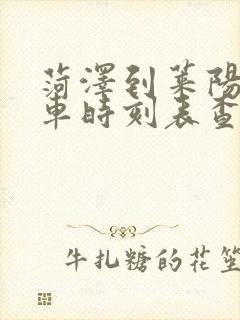 菏澤到萊陽
車時刻表查
牛扎糖的花笙